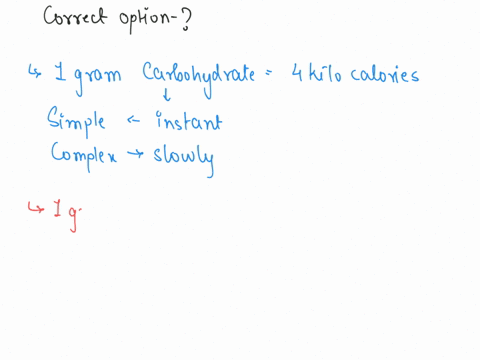 Correct option-?
↳ 1 gram Carbohydrate = 4 kilo calories
↓
Simple ← instant
Complex → slowly
↳ 1 g